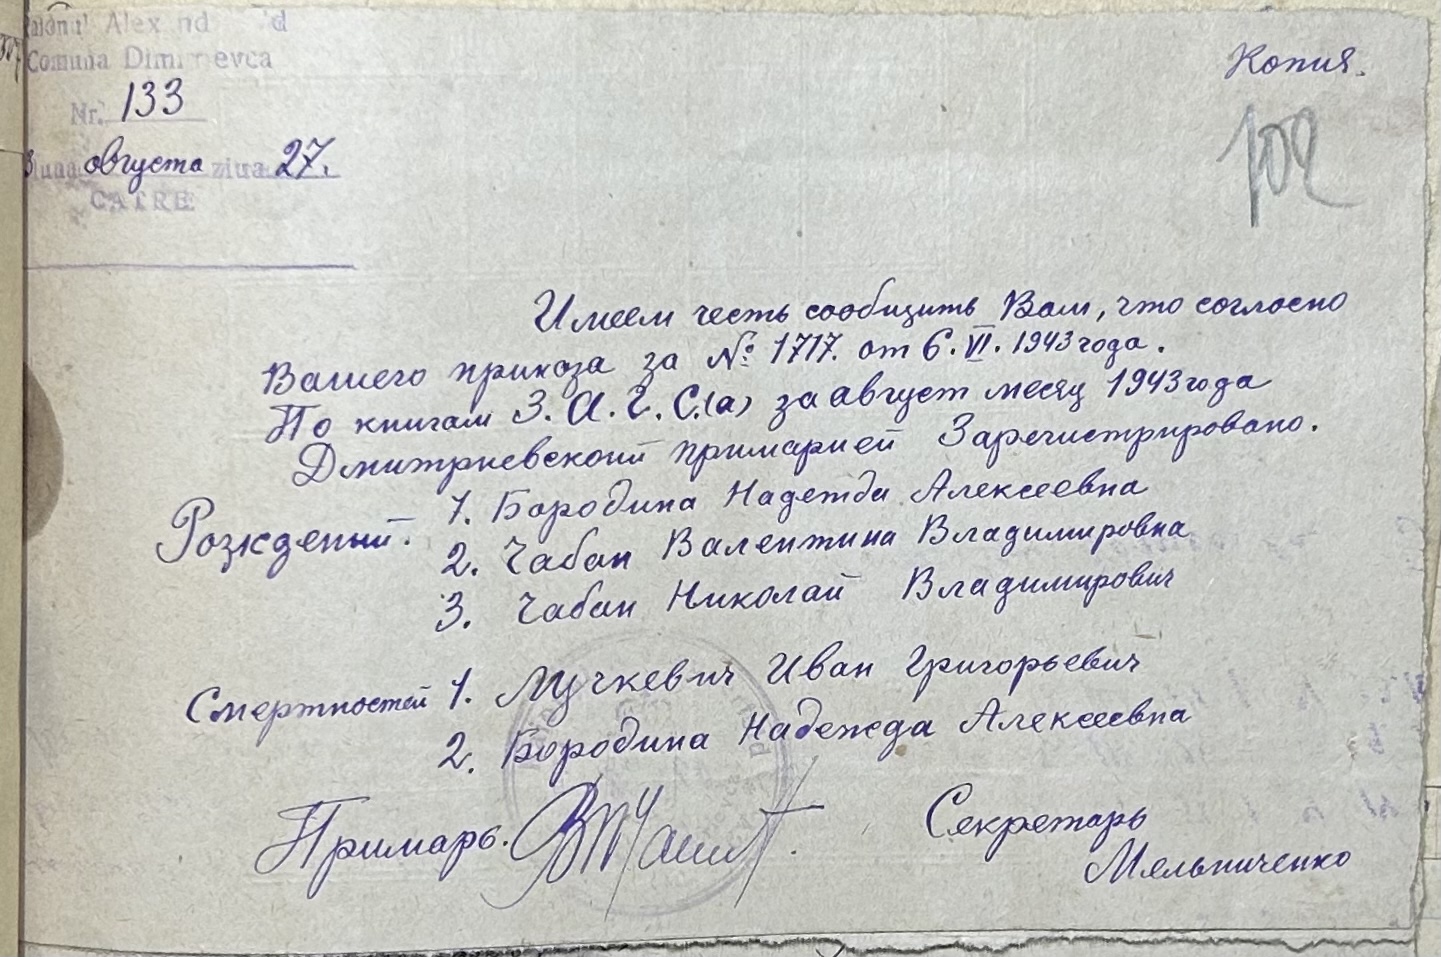 Raionul Alex nd d
Comuna Dimi nevca
Nr. 133
Luna августа ziua 27.
CATRE
Копия.
102
Имеем честь сообщить Вам, что согласно
Вашего приказа за № 1717. от 6. VI. 1943 года.
По книгам З. А. Г. С.(а) за август месяц 1943 года
Дмитриевской примарией Зарегистрировано.
Рождений. 1. Бородина Надежда Алексеевна
2. Чабан Валентина Владимировна
3. Чабан Николай Владимирович
Смертностей 1. Мучкевич Иван Григорьевич
2. Бородина Надежда Алексеевна
Примарь. Секретарь
Мельниченко